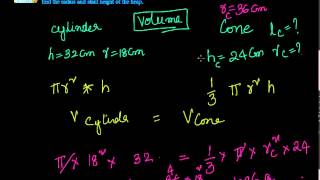 find the radius and slant height of the heap.
Volume r_c = 36 Cm
cylinder Cone l_c = ?
h = 32 Cm r = 18 Cm ∴ h_c = 24 Cm r_c ?
πr² * h 1/3 π r² h
V Cylinde = V Cone
π × 18² × 32 = 1/3 × π × r_c² × 24